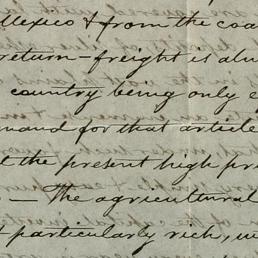 Mexico & from the coa
return-freight is alw
country being only e
mand for that article
t the present high pr
— The agricultural
particularly rich, w